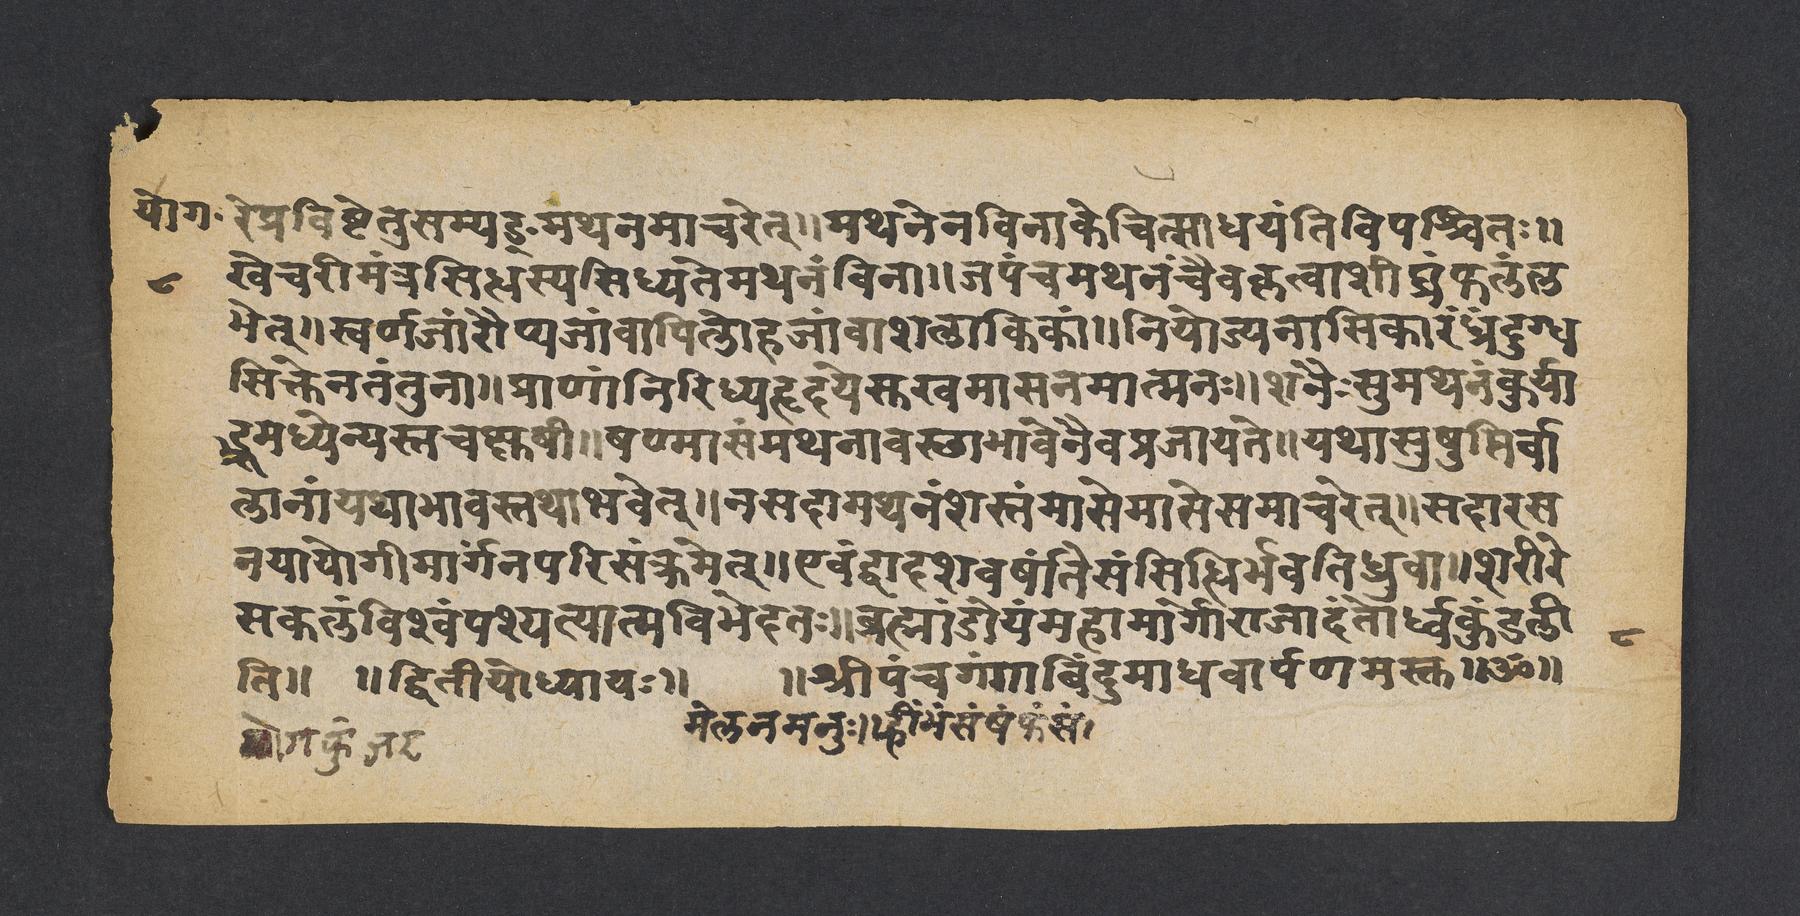 योग॰ रेप्रविष्टेतुसम्यङ्मथनमाचरेत्॥मथनेनविनाकेचित्साधयंतिविपश्चितः॥
८ खेचरीमंत्रसिद्धस्यसिध्यतेमथनंविना॥जपंचमथनंचैवकृत्वाशीघ्रंफलंल
भेत्॥स्वर्णजांरौप्यजांवापिलोहजांवाशलाकिकां॥नियोज्यनासिकारंध्रंदुग्ध
सिक्तेनतंतुना॥प्राणांनिरिध्यहृदयेस्तखमासनमात्मनः॥शनैःसुमथनंकुर्या
द्भ्रूमध्येन्यस्तचक्षुषी॥षण्मासंमथनावस्थाभावेनैवप्रजायते॥यथासुषुप्तिर्बा
लानांयथाभावस्तथाभवेत्॥नसदामथनंशस्तंमासेमासेसमाचरेत्॥सदारस
नयायोगीमार्गनपरिसंक्रमेत्॥एवंद्वादशवर्षांतेसंसिद्धिर्भवतिध्रुवा॥शरीरे
सकलंविश्वंपश्यत्यात्मविभेदतः॥ब्रह्मांडोयंमहामार्गोराजादंतोर्ध्वकुंडली ८
ति॥ ॥द्वितीयोध्यायः॥ ॥श्रीपंचगंगाबिंदुमाधवार्पणमस्तु॥ॐ॥
मेलनमनुः।ह्रींभंसंषंफंसं।
योगकुं